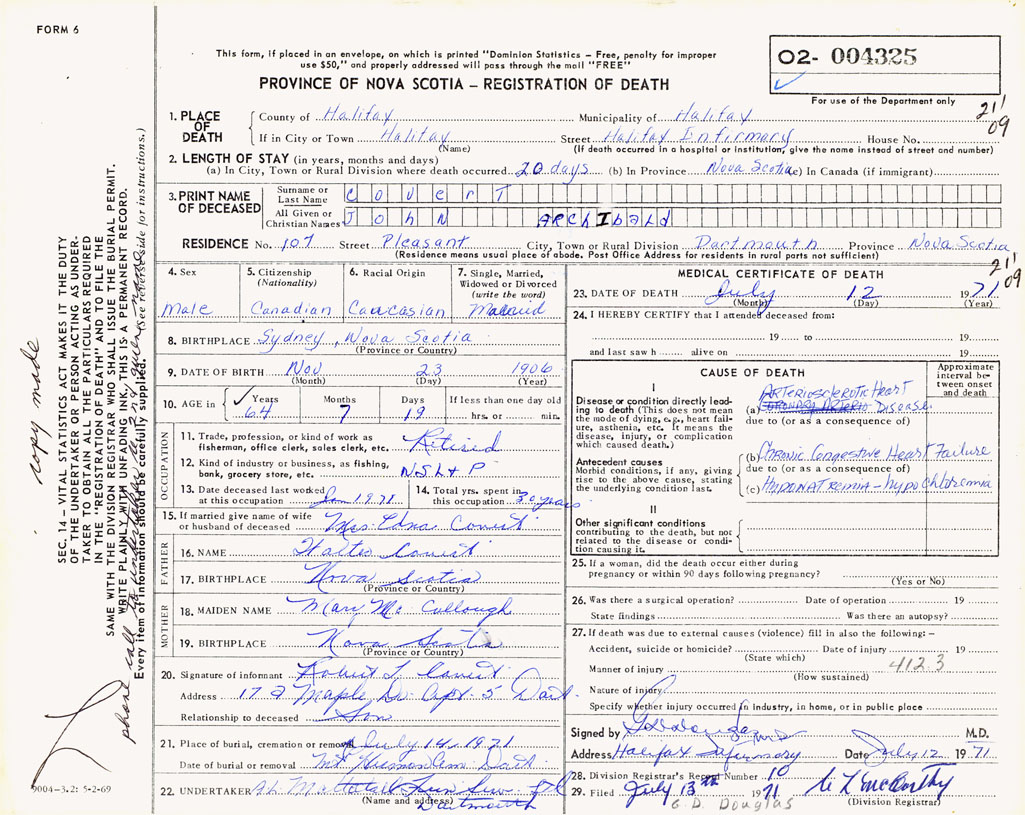 FORM 6
This form, if placed in an envelope, on which is printed "Dominion Statistics – Free, penalty for improper
use $50," and properly addressed will pass through the mail "FREE"
PROVINCE OF NOVA SCOTIA – REGISTRATION OF DEATH
02- 004325
For use of the Department only
21'
09
1. PLACE OF DEATH
County of Halifax Municipality of Halifax
If in City or Town Halifax Street Halifax Infirmary House No.
(Name) (If death occurred in a hospital or institution, give the name instead of street and number)
2. LENGTH OF STAY (in years, months and days)
(a) In City, Town or Rural Division where death occurred 20 days (b) In Province Nova Scotia (c) In Canada (if immigrant)
3. PRINT NAME OF DECEASED
Surname or Last Name CoverT
All Given or Christian Names John ARCHIbald
RESIDENCE No. 107 Street Pleasant City, Town or Rural Division Dartmouth Province Nova Scotia
(Residence means usual place of abode. Post Office Address for residents in rural parts not sufficient)
4. Sex
Male
5. Citizenship
(Nationality)
Canadian
6. Racial Origin
Caucasian
7. Single, Married,
Widowed or Divorced
(write the word)
Married
8. BIRTHPLACE Sydney, Nova Scotia
(Province or Country)
9. DATE OF BIRTH Nov 23 1906
(Month) (Day) (Year)
10. AGE in Years Months Days If less than one day old
64 7 19 hrs. or min.
OCCUPATION
11. Trade, profession, or kind of work as
fisherman, office clerk, sales clerk, etc. Retired
12. Kind of industry or business, as fishing,
bank, grocery store, etc. N.S.L & P
13. Date deceased last worked
at this occupation Jan 1971
14. Total yrs. spent in
this occupation 30 years
15. If married give name of wife
or husband of deceased Mrs. Edna Covert
FATHER
16. NAME Walter Covert
17. BIRTHPLACE Nova Scotia
(Province or Country)
MOTHER
18. MAIDEN NAME Mary McCullough
19. BIRTHPLACE Nova Scotia
(Province or Country)
20. Signature of informant Robert L Covert
Address 17 Maple Dr Apt 5 Dart
Relationship to deceased Son
21. Place of burial, cremation or removal July 14, 1971
Date of burial or removal Mt Hermon Cem Dart
22. UNDERTAKER
(Name and address) Dartmouth
21'
09
MEDICAL CERTIFICATE OF DEATH
23. DATE OF DEATH July 12 1971
(Month) (Day) (Year)
24. I HEREBY CERTIFY that I attended deceased from:
19 to 19
and last saw h alive on 19
CAUSE OF DEATH
Approximate interval between onset and death
I
Disease or condition directly leading to death (This does not
mean the mode of dying, e.g., heart failure, asthenia, etc. It means the
disease, injury, or complication
which caused death.)
(a) ARTERIOSCLEROTIC Heart Disease
due to (or as a consequence of)
Antecedent causes
Morbid conditions, if any, giving
rise to the above cause, stating
the underlying condition last.
(b) CHRONIC Congestive Heart Failure
due to (or as a consequence of)
(c) HYPONATREMIA – hypochloremia
II
Other significant conditions
contributing to the death, but not
related to the disease or condition causing it.
25. If a woman, did the death occur either during
pregnancy or within 90 days following pregnancy?
(Yes or No)
26. Was there a surgical operation? Date of operation 19
State findings Was there an autopsy?
27. If death was due to external causes (violence) fill in also the following: –
Accident, suicide or homicide? Date of injury 19
(State which)
412.3
Manner of injury
(How sustained)
Nature of injury
Specify whether injury occurred in industry, in home, or in public place
Signed by M.D. M.D.
Address Halifax Infirmary Date July 12 1971
28. Division Registrar's Record Number 10
29. Filed July 13th 1971
(Division Registrar)
G. D. Douglas
SEC. 14 – VITAL STATISTICS ACT MAKES IT THE DUTY
OF THE UNDERTAKER OR PERSON ACTING AS UNDERTAKER TO OBTAIN ALL THE PARTICULARS REQUIRED
IN THE "REGISTRATION OF DEATH" AND TO FILE THE
SAME WITH THE DIVISION REGISTRAR WHO SHALL ISSUE THE BURIAL PERMIT.
WRITE PLAINLY WITH UNFADING INK, THIS IS A PERMANENT RECORD.
Every item of information should be carefully supplied. (see reverse side for instructions.)
copy made
9004-3.2: 5-2-69